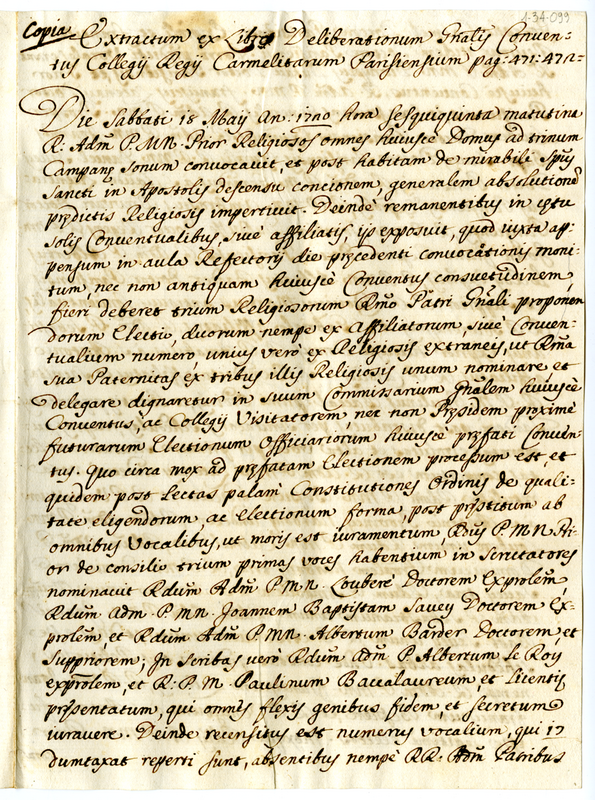 1-34-099
Copia Extractum ex Libro Deliberationum Gñalis Conven-
tus Collegij Regij Carmelitarum Parisiensium pag: 471: 472-
Die Sabbati 18 Maij An: 1720 hora sesquiquinta matutina
R: Adm̃ P. M. N. Prior Religiosos omnes huiusce Domus ad trinum
Campanę sonum convocavit, et post habitam de mirabili Spũs
Sancti in Apostolis descensu concionem, generalem absolutionẽ
prędictis Religiosis impertivit. Deinde remanentibus in cętu
solis Conventualibus, sivè affiliatis, ijs exposuit, quod iuxta ap-
pensum in aula Refectorij die pręcedenti convocationis moni-
tum, nec non antiquam huiusce Conventus consuetudinem,
fieri deberet trium Religiosorum Rm̃o Patri Gñali proponen
dorum Electio, duorum nempe ex Affiliatorum, sivè Conven-
tualium numero, unius verò ex Religiosis extraneis, ut Rm̃a
sua Paternitas ex tribus illis Religiosis unum nominare, et
delegare dignaretur in suum Commissarium Gñalem huiusce
Conventus, ac Collegij Visitatorem, nec non Pręsidem proximè
futurarum Electionum Officiariorum huiusce pręfati Conven-
tus. Quo circa mox ad pręfatam Electionem processum est, et
quidem post lectas palam Constitutiones Ordinis de quali-
tate eligendorum, ac electionum forma, post pręstitum ab
omnibus Vocalibus, ut moris est iuramentum, Rdus P. M. N. Pri-
or de consilio trium primas voces habentium in Scrutatores
nominavit Rdum Adm̃ P. M. N. Louberè Doctorem Exprolem̃
Rdum Adm̃. P. M. N. Joannem Baptistam Savey Doctorem Ex-
prolem̃, et Rdum Adm̃ P. M. N. Albertum Barder Doctorem, et
Suppriorem; In Scribas verò Rdum Adm̃ P. Albertum le Roy
exprõlem, et R. P. M. Paulinum Baccalaureum et Licentię
pręsentatum, qui omnes flexis genibus fidem, et secretum
iuravere. Deinde recensitus est numerus vocalium, qui 17
dumtaxat reperti sunt, absentibus nempè RR. Adm̃ Patribus